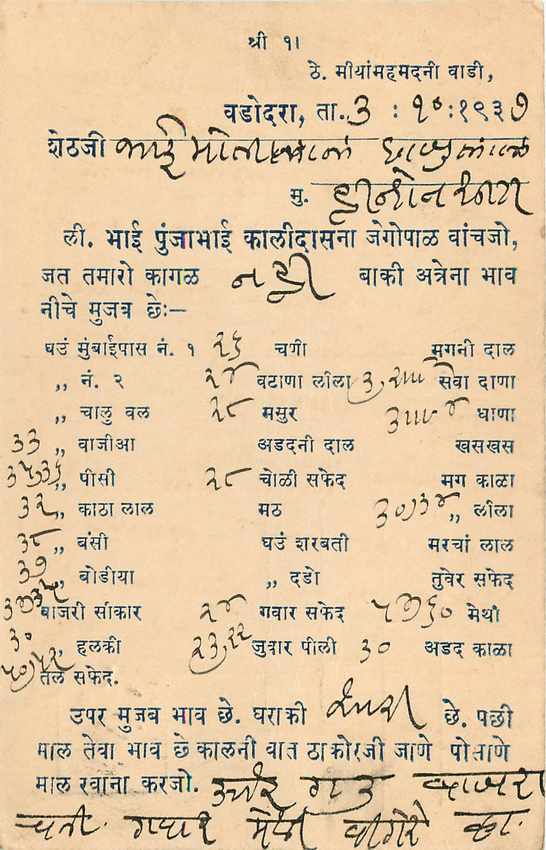 श्री १।
ठे. मीयांमहमदनी वाडी,
वडोदरा, ता. 3 : १० : १९३७
शेठजी भाई मोतीलाल
मु.
ली. भाई पुंजाभाई कालीदासना जेगोपाळ वांचजो,
जत तमारो कागळ नथी बाकी अत्रेना भाव
नीचे मुजब छेः—
घउं मुंबाईपास नं. १ २६ चणी मगनी दाल
,, नं. २ २४ वटाणा लीला सेवा दाणा
,, चालु वल २८ मसुर धाणा
33 ,, वाजीआ अडदनी दाल खसखस
,, पीसी २८ चोळी सफेद मग काळा
3२ ,, काठा लाल मठ ,, लीला
3८ ,, बंसी घउं शरबती मरचां लाल
3७ ,, बोडीया ,, दडो तुवेर सफेद
बाजरी सांकार २४ गवार सफेद मेथी
3० ,, हलकी २3,२२ जुवार पीली 3० अडद काळा
तल सफेद.
उपर मुजब भाव छे. घराकी छे. पछी
माल तेवा भाव छे कालनी वात ठाकोरजी जाणे पोताणे
माल रवाना करजो.
गवार मेथी वीगेरे